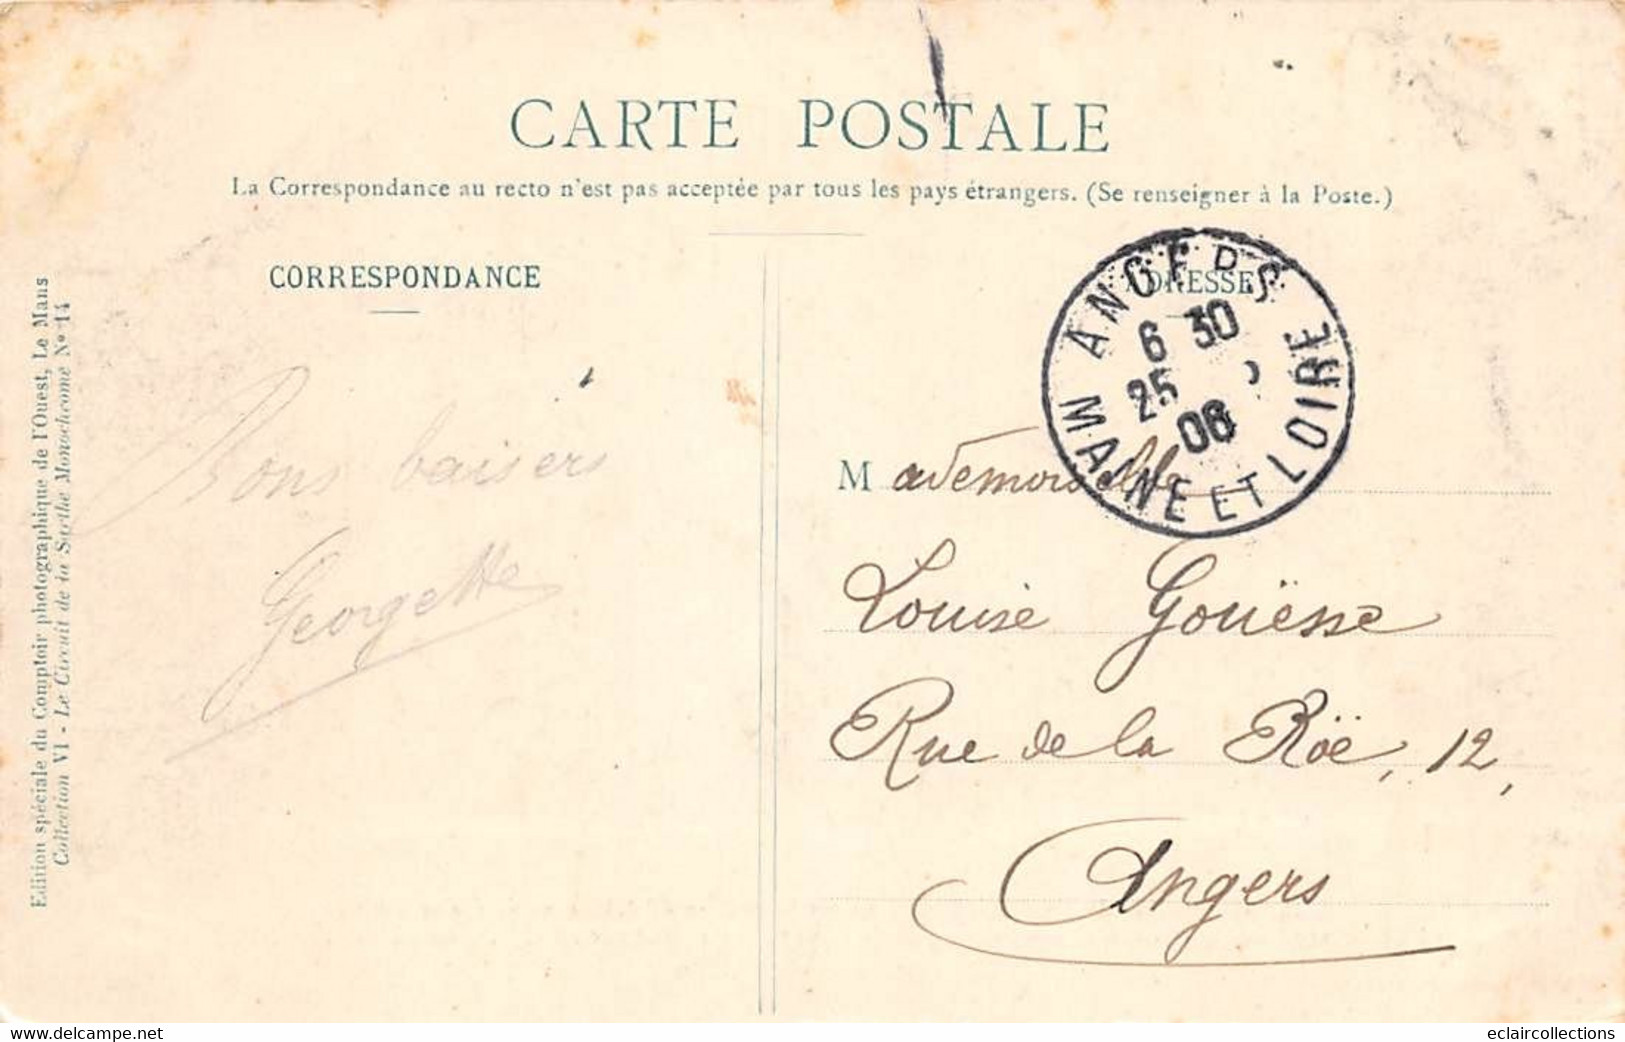 CARTE POSTALE
La Correspondance au recto n'est pas acceptée par tous les pays étrangers. (Se renseigner à la Poste.)
CORRESPONDANCE
ADRESSE
ANGERS
6 30
25
06
MAINE ET LOIRE
Bons baisers
Georgette
Mademoiselle
Louise Gouësse
Rue de la Röe, 12,
Angers
Edition spéciale du Comptoir photographique de l'Ouest, Le Mans
Collection VI - Le Circuit de la Sarthe Monochrome N° 14
www.delcampe.net
eclaircollections